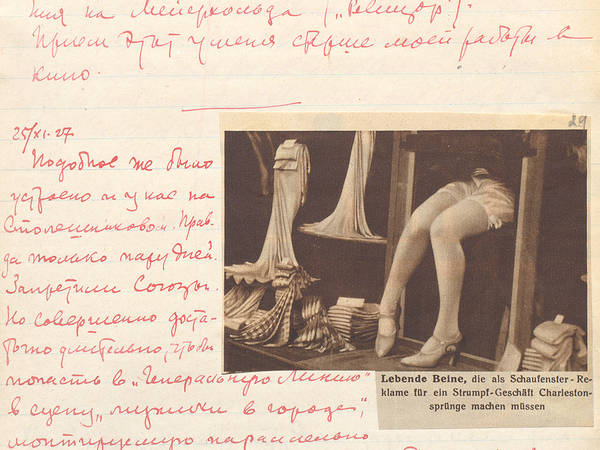 ния на Мейерхольда („Ревизор").
Прием этот у меня старше моей работы в
кино.
25/XI-27
29
Подобное же было
устроено и у нас на
Столешниковом. Прав-
да только пару дней.
Запретили Союзы.
Но совершенно доста-
точно длительно, чтобы
попасть в „Генеральную Линию"
в сцену „мужики в городе",
монтируемую параллельно
Lebende Beine, die als Schaufenster-Re-
klame für ein Strumpf-Geschäft Charleston-
sprünge machen müssen